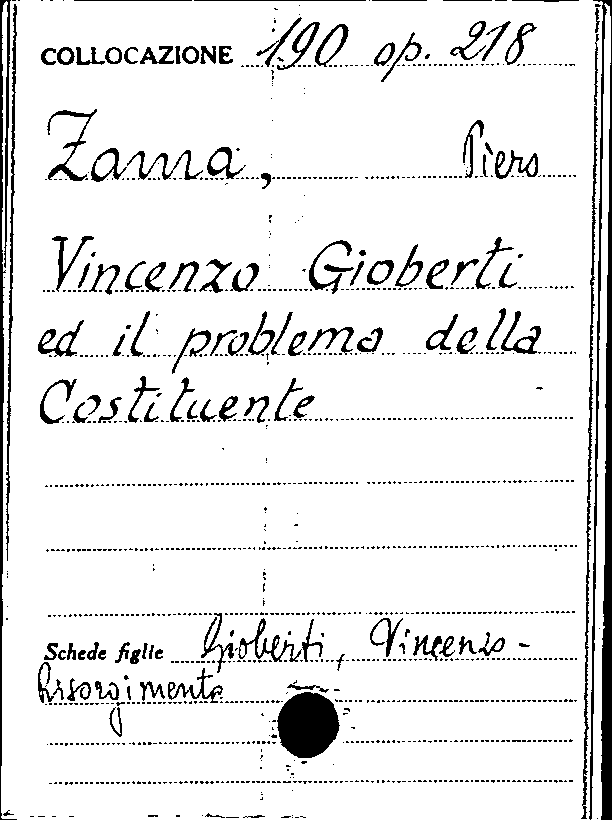 COLLOCAZIONE 190 op. 218
Zama, Piero
Vincenzo Gioberti
ed il problema della
Costituente
Schede figlie Gioberti, Vincenzo -
Risorgimento